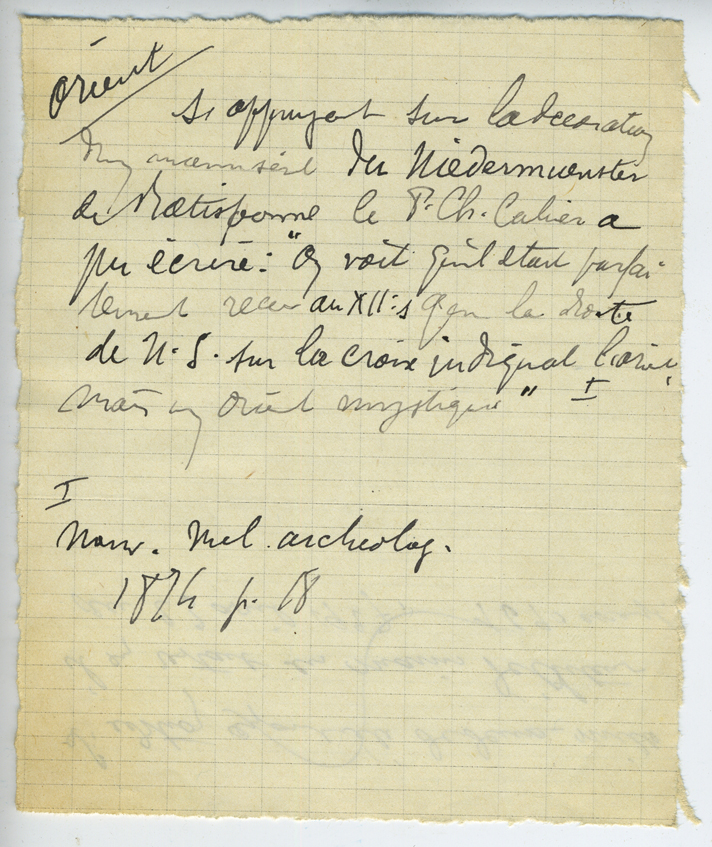 Orient
S'appuyant sur la decoration
d'un manuscrit du Niedermuenster
de Ratisbonne le P. Ch. Cahier a
pu écrire: "On voit qu'il etait parfai-
tement recu au XII: s que la droite
de N. S. sur la croix indiquat l'orient
mais un orient mystique" I
I
Nouv. Mel. archeolog.
1874 p. 18